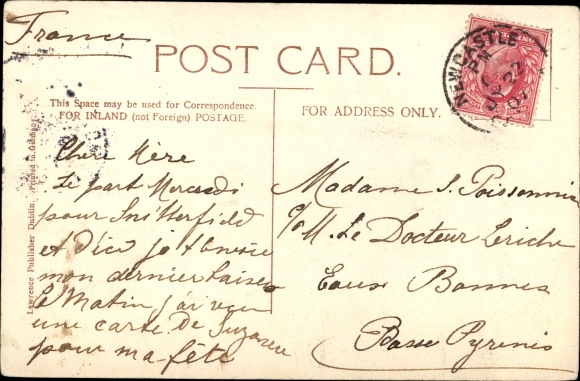 France
POST CARD.
This Space may be used for Correspondence.
FOR INLAND (not Foreign) POSTAGE.
FOR ADDRESS ONLY.
NEWCASTLE
Lawrence Publisher Dublin. Printed in Germany
Chère Mère
Je part Mercredi
pour Snitterfield
et d'ici je t'envoie
mon dernier baiser
Ce Matin j'ai reçu
une carte de Suzanne
pour ma fête
Madame S. Poissonnier
c/o M. Le Docteur Leriche
Eaux Bonnes
Basse Pyrenis